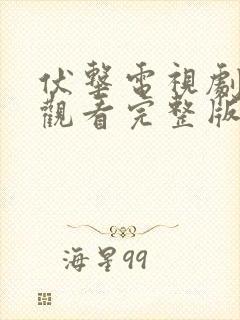 伏擊電視劇
觀看完整版
海星99